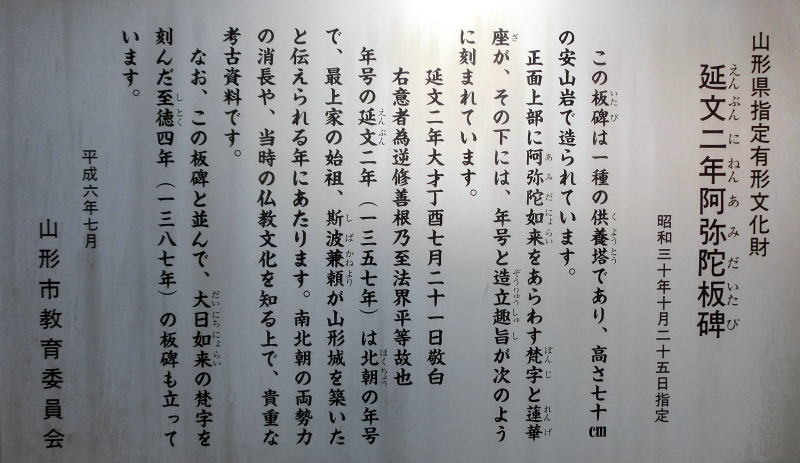 山形県指定有形文化財
延文二年阿弥陀板碑
えんぶんにねんあみだいたび
昭和三十年十月二十五日指定
この板碑は一種の供養塔であり、高さ七十㎝
いたび くようとう
の安山岩で造られています。
正面上部に阿弥陀如来をあらわす梵字と蓮華
あみだにょらい ぼんじ れんげ
座が、その下には、年号と造立趣旨が次のよう
ざ ぞうりゅうしゅし
に刻まれています。
延文二年大才丁酉七月二十一日敬白
右意者為逆修善根乃至法界平等故也
年号の延文二年（一三五七年）は北朝の年号
えんぶん ほくちょう
で、最上家の始祖、斯波兼頼が山形城を築いた
しばかねより
と伝えられる年にあたります。南北朝の両勢力
の消長や、当時の仏教文化を知る上で、貴重な
考古資料です。
なお、この板碑と並んで、大日如来の梵字を
だいにちにょらい
刻んだ至徳四年（一三八七年）の板碑も立って
しとく
います。
平成六年七月
山形市教育委員会